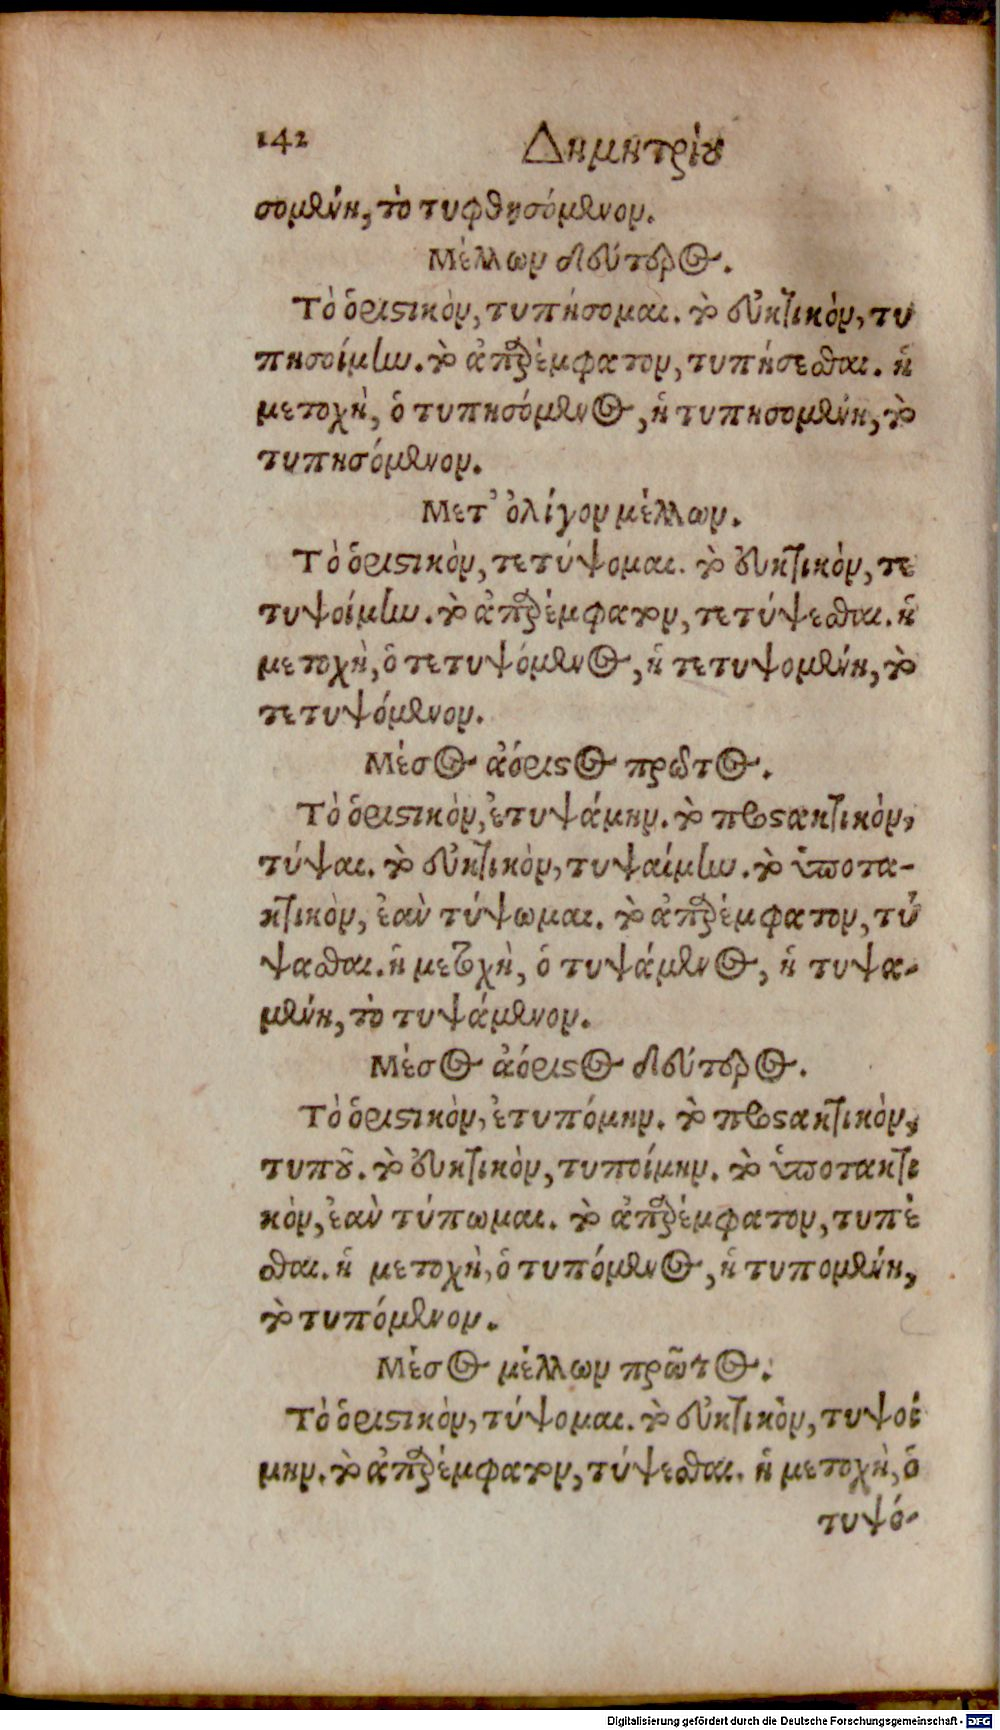 142 Δημητρίου
σομένη, τὸ τυφθησόμενον.
Μέλλων δεύτερος.
Τὸ ὁριστικὸν, τυπήσομαι. τὸ εὐκτικὸν, τυ
πησοίμην. τὸ ἀπαρέμφατον, τυπήσεσθαι. ἡ
μετοχὴ, ὁ τυπησόμενος, ἡ τυπησομένη, τὸ
τυπησόμενον.
Μετ' ὀλίγον μέλλων.
Τὸ ὁριστικὸν, τετύψομαι. τὸ εὐκτικὸν, τε
τυψοίμην. τὸ ἀπαρέμφατον, τετύψεσθαι. ἡ
μετοχὴ, ὁ τετυψόμενος, ἡ τετυψομένη, τὸ
τετυψόμενον.
Μέσος ἀόριστος πρῶτος.
Τὸ ὁριστικὸν, ἐτυψάμην. τὸ προστακτικὸν,
τύψαι. τὸ εὐκτικὸν, τυψαίμην. τὸ ὑποτα-
κτικὸν, ἐὰν τύψωμαι. τὸ ἀπαρέμφατον, τύ
ψασθαι. ἡ μετοχὴ, ὁ τυψάμενος, ἡ τυψα-
μένη, τὸ τυψάμενον.
Μέσος ἀόριστος δεύτερος.
Τὸ ὁριστικὸν, ἐτυπόμην. τὸ προστακτικὸν,
τυποῦ. τὸ εὐκτικὸν, τυποίμην. τὸ ὑποτακτι
κὸν, ἐὰν τύπωμαι. τὸ ἀπαρέμφατον, τυπέ
σθαι. ἡ μετοχὴ, ὁ τυπόμενος, ἡ τυπομένη,
τὸ τυπόμενον.
Μέσος μέλλων πρῶτος.
Τὸ ὁριστικὸν, τύψομαι. τὸ εὐκτικὸν, τυψοί
μην. τὸ ἀπαρέμφατον, τύψεσθαι. ἡ μετοχὴ, ὁ
τυψό-
Digitalisierung gefördert durch die Deutsche Forschungsgemeinschaft - DFG